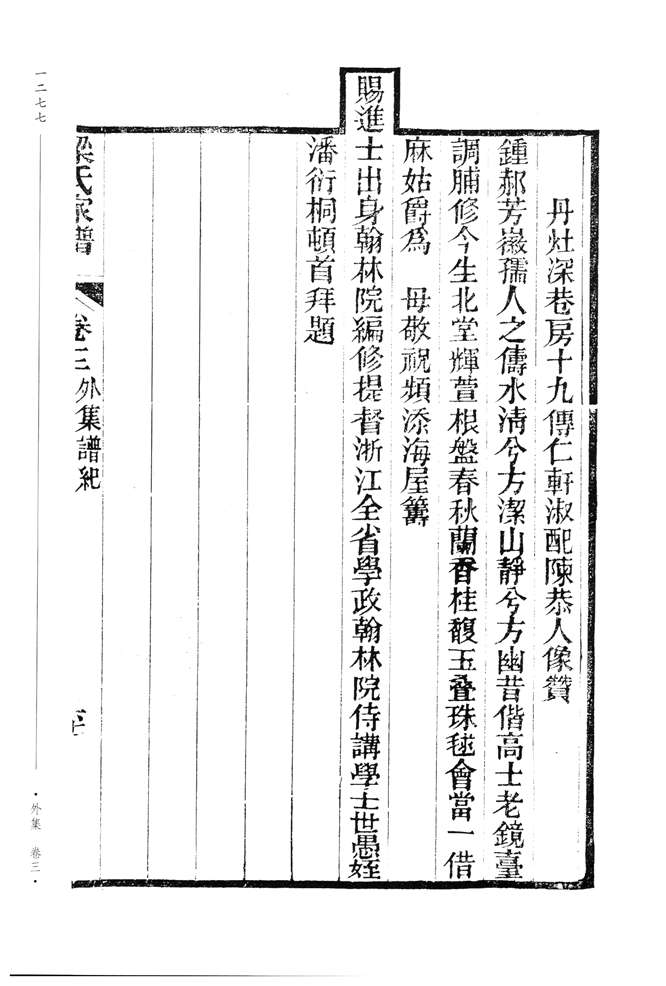 丹灶深巷房十九傳仁軒淑配陳恭人像贊
鍾郝芳嶶孺人之儔水清兮方潔山靜兮方幽昔偕高士老鏡臺
調脯修今生北堂輝萱根盤春秋蘭香桂馥玉叠珠毬會當一借
麻姑爵爲 母敬祝頻添海屋籌
賜進士出身翰林院編修提督浙江全省學政翰林院侍講學士世愚姪
潘衍桐頓首拜題
梁氏家譜 卷三外集譜紀
一二七七
·外集 卷三·